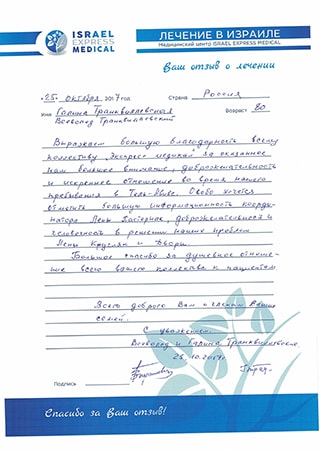 ISRAEL
EXPRESS
MEDICAL
ЛЕЧЕНИЕ В ИЗРАИЛЕ
Медицинский центр ISRAEL EXPRESS MEDICAL
Ваш отзыв о лечении
"25" октября 2017 год Страна Россия
Имя Галина Транквиллевская Возраст 80
Всеволод Транквиллевский
Выражаем большую благодарность всему
коллективу "Экспресс медикал" за оказанное
нам большое внимание, доброжелательность
и искреннее отношение во время нашего
пребывания в Тель-Авиве. Особо хочется
отметить большую информационность коорди-
натора Лены Пастернак, доброжелательность и
человечность в решении наших проблем
Лены Кругляк и Двори.
Большое спасибо за душевное отноше-
ние всего вашего коллектива к пациентам
Всего доброго Вам и членам Ваших
семей.
С уважением.
Всеволод и Галина Транквиллевские
25.10.2017г
Подпись
Спасибо за Ваш отзыв!